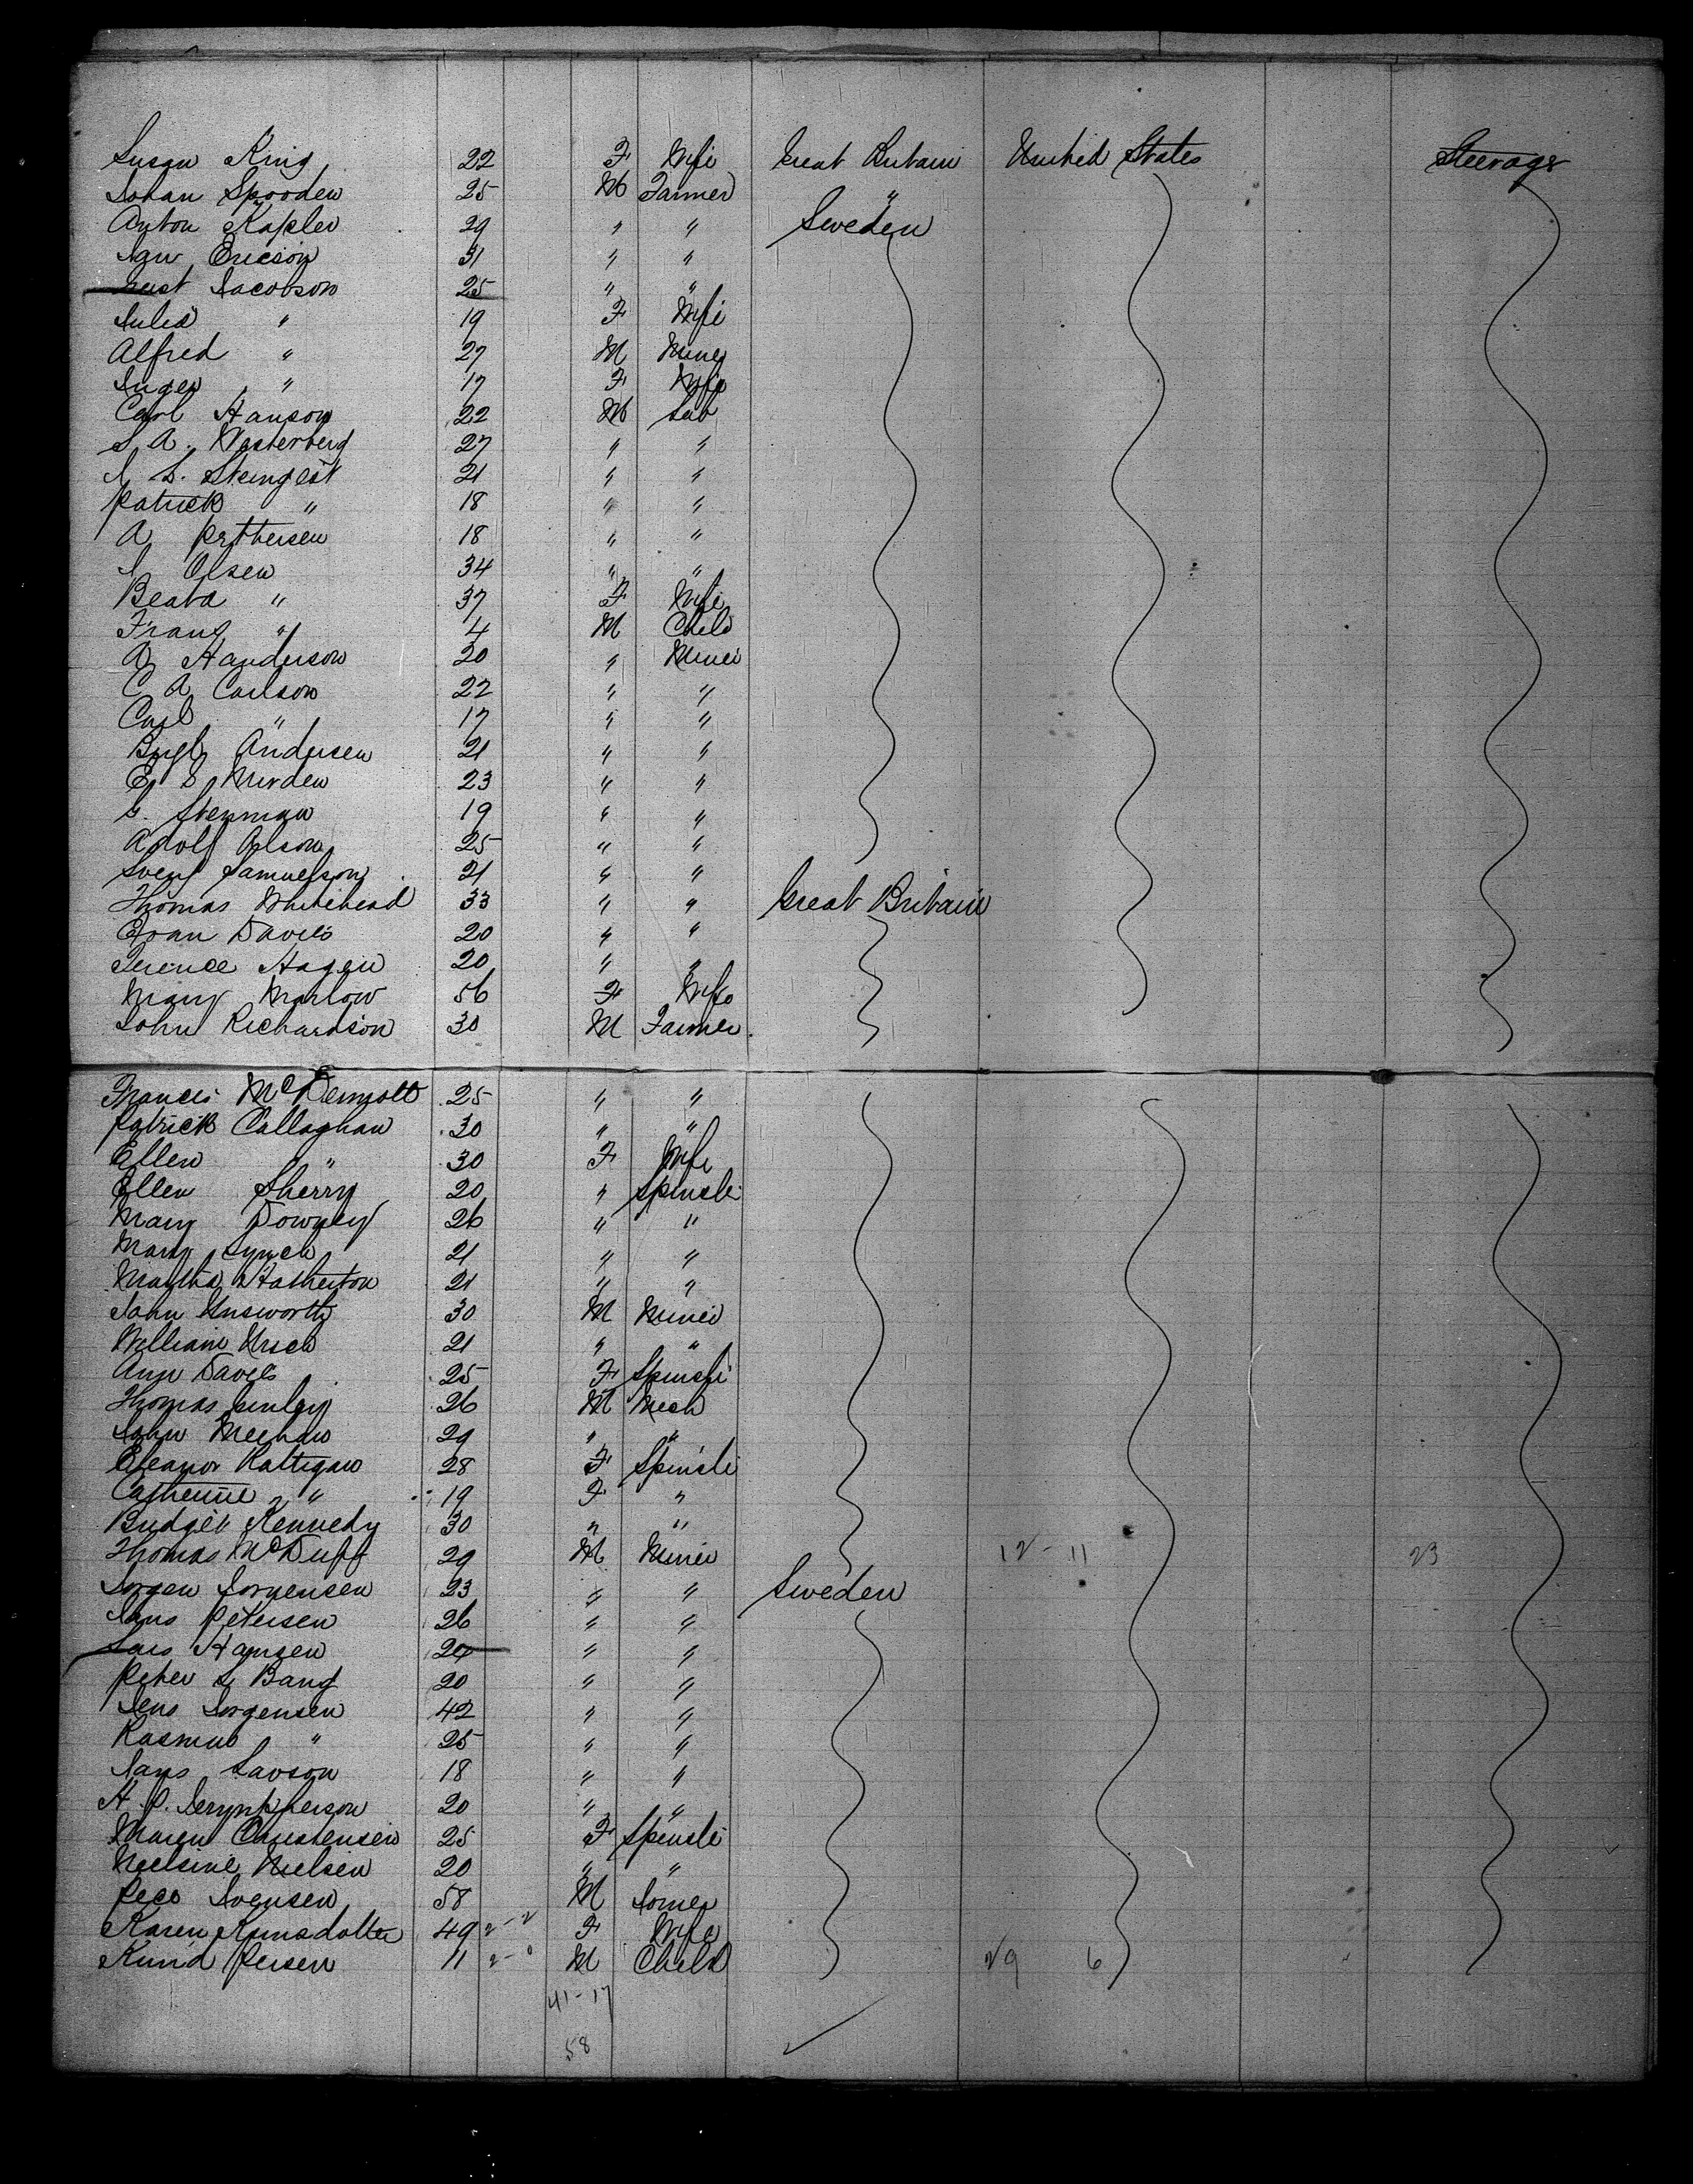 Susan King 22 F Wife Great Britain United States Steerage
Johan Spooden 25 M Farmer "
Anton Kapler 29 " " Sweden
Jan Ericson 31 " "
Gust Jacobson 25 " "
Julia " 19 F Wife
Alfred " 27 M Miner
Inger " 17 F Wife
Carl Hanson 22 M Lab
S A. Westerberg 27 " "
21 " "
Patrick " 18 " "
A Petthersen 18 " "
J Olsen 34 " "
Beata " 37 F Wife
Frans " 4 M Child
A Handerson 20 " Miner
C A Carlson 22 " "
Carl " 17 " "
Andersen 21 " "
E S Nerden 23 " "
G. Stenman 19 " "
Adolf Olson 25 " "
Sven Samuelson 21 " "
Thomas Whitehead 33 " " Great Britain
Evan Davies 20 " "
Terence Hagen 20 " "
Mary Marlow 56 F Wife
John Richardson 30 M Farmer.
Francis McDermott 25 " "
Patrick Callaghan 30 " "
Ellen " 30 F Wife
Ellen Sherry 20 " Spinster
Mary Downey 26 " "
Mary Lynch 21 " "
Martha Hatherton 21 " "
John Unsworth 30 M Miner
William 21 " "
Ann Davies 25 F Spinster
Thomas 26 M Mech
John Meehan 29 " "
Eleanor Rattigan 28 F Spinster
Catherine " 19 F "
Bridget Kennedy 30 " "
Thomas McDuff 29 M Miner 12-11 23
Jorgen Jorgensen 23 " " Sweden
Hans Petersen 26 " "
Lars Hansen 24 " "
Peter L Bang 20 " "
Jens Jorgensen 42 " "
Rasmus " 25 " "
Hans Lavson 18 " "
H. P. 20 " "
Maren Christensen 25 F Spinster
Nielsine Nielsen 20 " "
Svensen 58 M
Karen Knusdotter 49 2-2 F Wife
Knud Persen 11 2-0 M Child 29 6
41-17
58